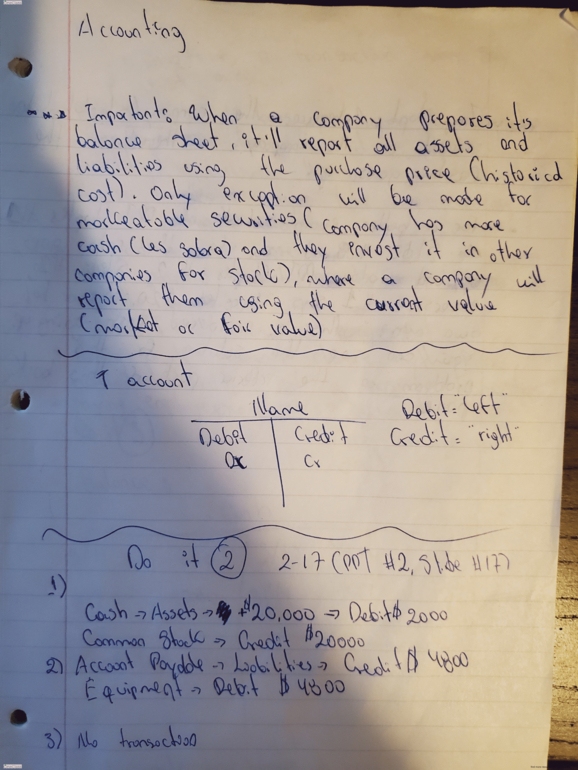 Accounting
Important: When a company prepares it's
balance sheet, it'll report all assets and
liabilities using the purchase price (historical
cost). Only exception will be made for
marketable securities (company has more
cash (les sobra) and they invest it in other
companies for stock), where a company will
report them using the current value
(market or fair value)
T account
Name
Debit = "left"
Debit Credit
Credit = "right"
Cr
Do it 2 2-17 (PPT #2, Slide #17)
1)
Cash → Assets → +$20,000 → Debit $ 2000
Common Stock → Credit $20000
2) Account Payable → Liabilities → Credit $ 4800
Equipment → Debit $ 4800
3) No transaction